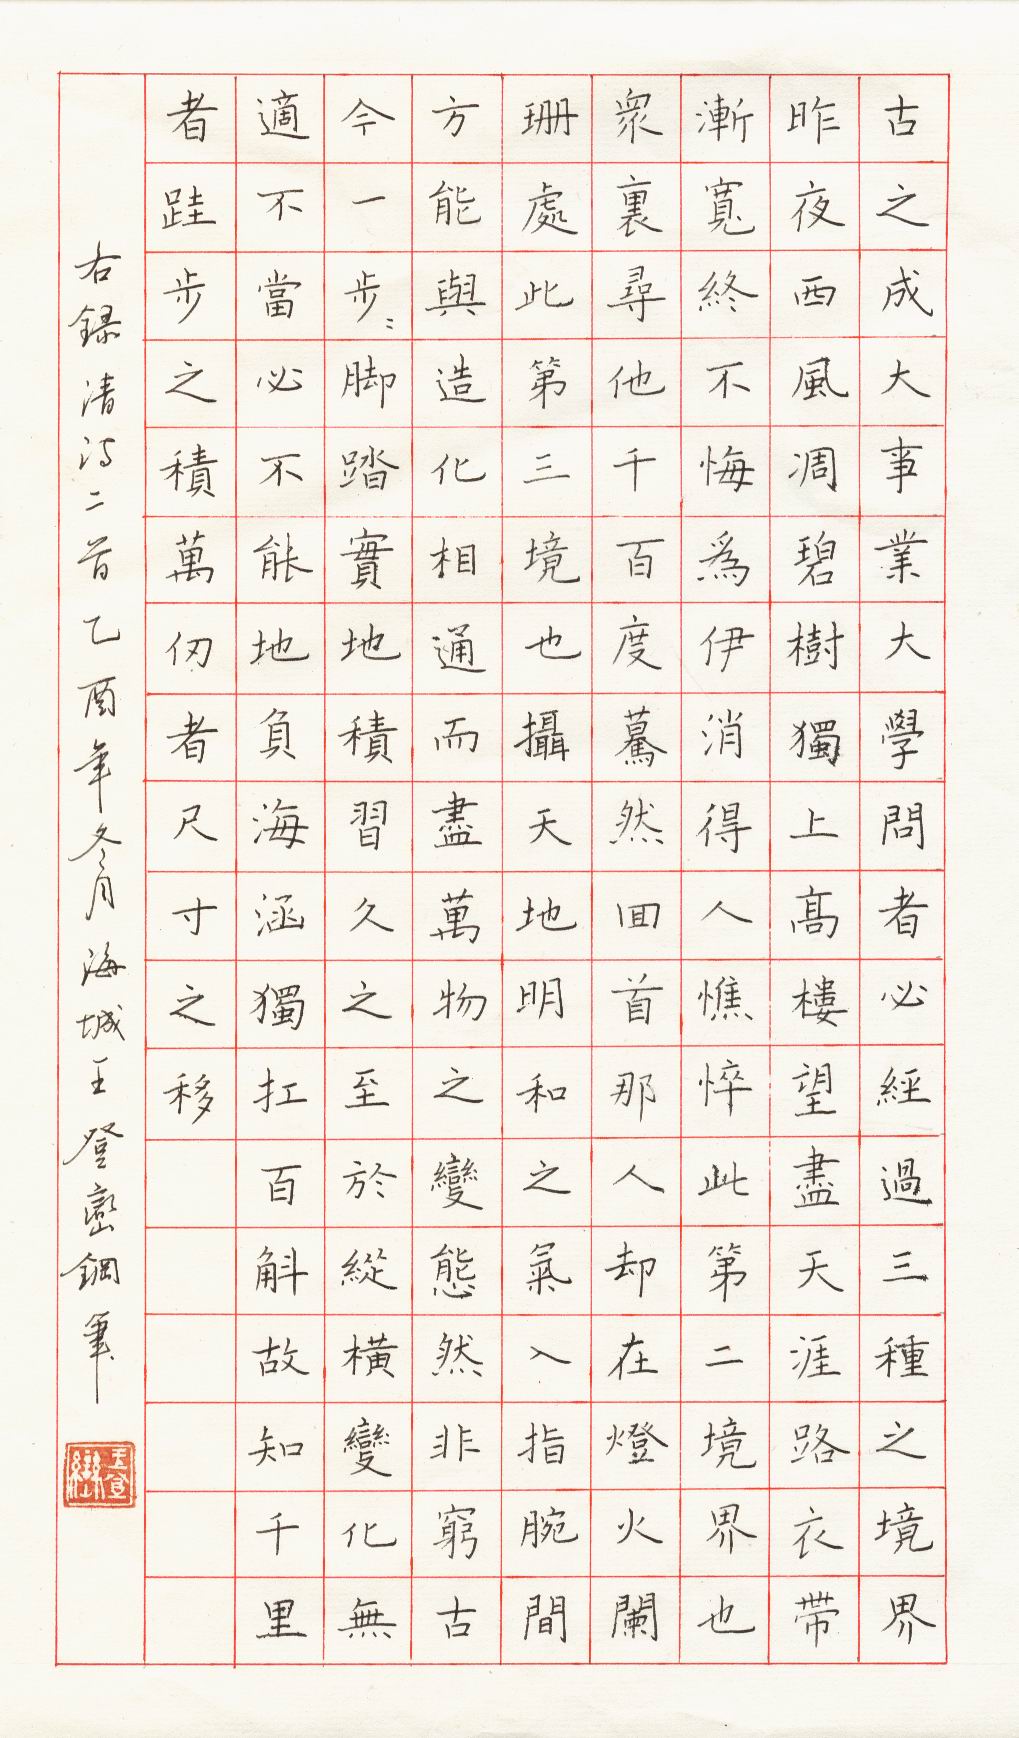 古之成大事業大學問者必經過三種之境界
昨夜西風凋碧樹獨上高樓望盡天涯路衣帶
漸寬終不悔為伊消得人憔悴此第二境界也
眾裏尋他千百度驀然回首那人却在燈火闌
珊處此第三境也攝天地明和之氣入指腕間
方能與造化相通而盡萬物之變態然非窮古
今一步々脚踏實地積習久之至於縱橫變化無
適不當必不能地負海涵獨扛百斛故知千里
者跬步之積萬仞者尺寸之移
右録清詩二首乙酉年冬月海城王登巒鋼筆
王登巒